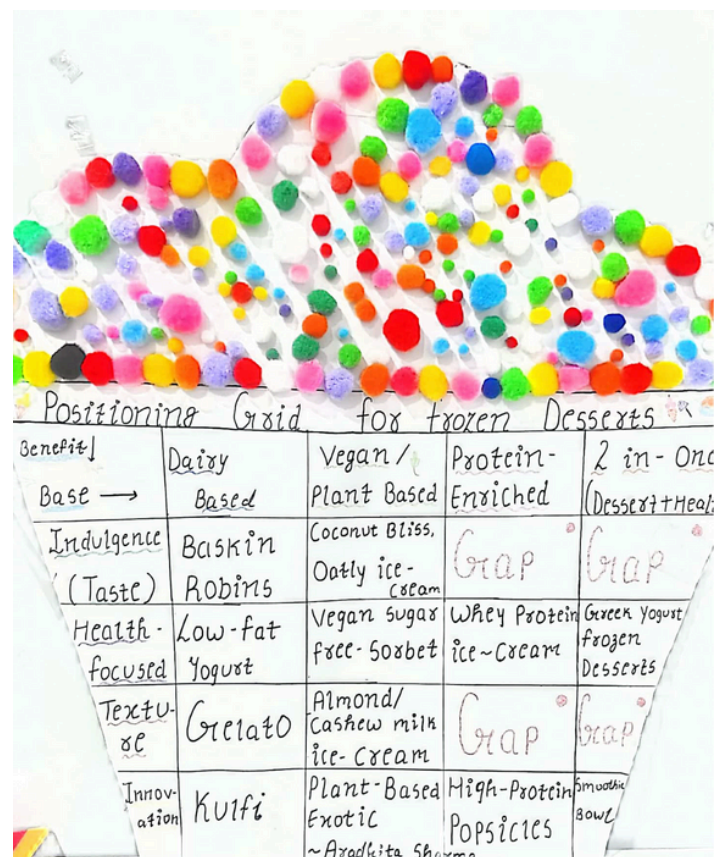 Positioning Grid for frozen Desserts
Benefit↓
Base →
Dairy
Based
Vegan /
Plant Based
Protein-
Enriched
2 in-One
(Dessert+Heal
Indulgence
(Taste)
Baskin
Robins
Coconut Bliss,
Oatly ice-
cream
Gap
Gap
Health-
focused
Low-fat
Yogurt
Vegan sugar
free-Sorbet
Whey Protein
ice-Cream
Greek Yogurt
frozen
Desserts
Textu-
re
Gelato
Almond/
Cashew milk
ice-Cream
Gap
Gap
Innov-
ation
Kulfi
Plant-Based
Exotic
~Aradhita Sharma
High-Protein
Popsicles
Smoothie
Bowl